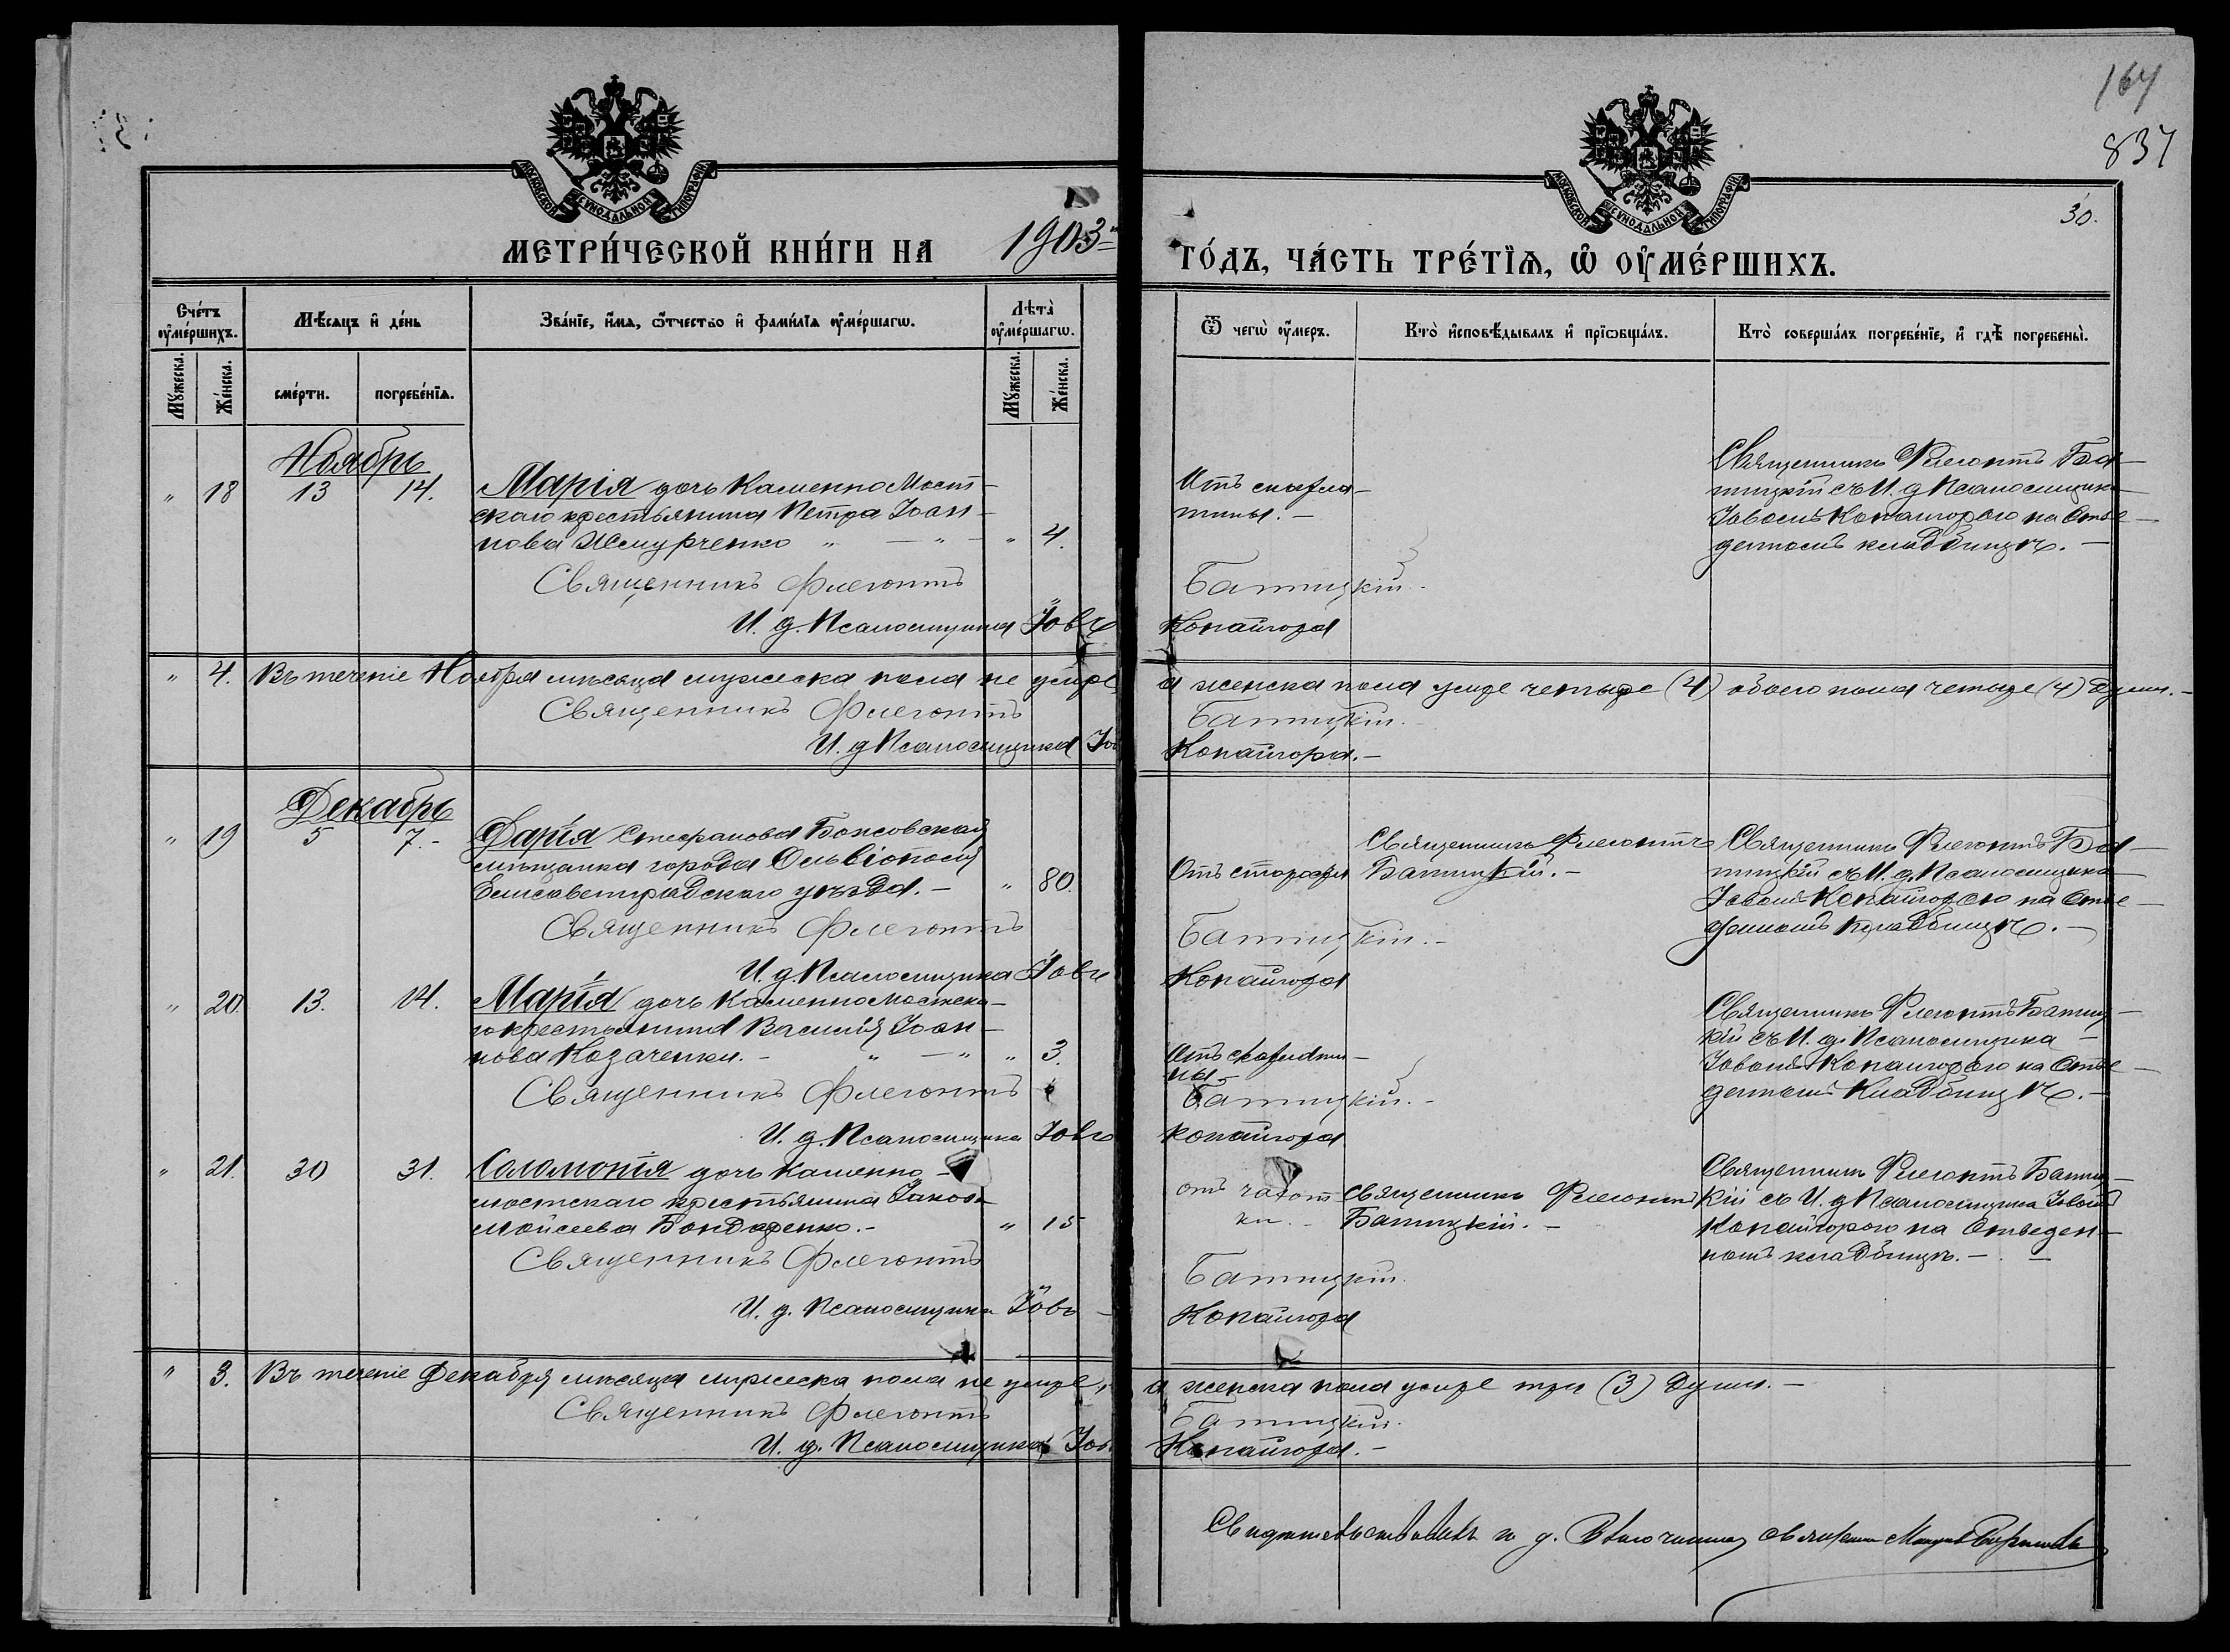 164
837
30.
МОСКОВСКОЙ СѴНОДАЛЬНОЙ ТИПОГРАФІИ
МОСКОВСКОЙ СѴНОДАЛЬНОЙ ТИПОГРАФІИ
МЕТРИ́ЧЕСКОЙ КНИ́ГИ НА 1903 ГО́ДЪ, ЧА́СТЬ ТРЕ́ТІѦ, Ѡ ОУМЕ́РШИХЪ.
Сче́тъ оуме́ршихъ.
Мѣсѧцъ и де́нь
Зва́нїе, и́мѧ, ѿтчество и фами́лїѧ оуме́ршагѡ.
Лѣта̀ оуме́ршагѡ.
Ѿ чегѡ̀ оу́меръ.
Кто̀ исповѣ́дывалъ и прїѡбща́лъ.
Кто̀ соверша́лъ погребе́нїе, и гдѣ̀ погребены̀.
Мꙋ́жеска.
Же́нска.
сме́рти.
погребе́нїѧ.
Мꙋ́жеска.
Же́нска.
Ноябрь
" 18 13 14. Марія дочь Каменно Мост-
скаго крестьянина Петра Іоан-
нова " — " — " 4.
Отъ скарла-
тины. —
Священникъ Флегонтъ Ба-
тицкій съ И. д Псаломщика
Іовомъ Копайгорою на Отве-
денномъ кладбищѣ. —
Священникъ Флегонтъ Батицкій.
И. д. Псаломщика Іовъ Копайгора
" 4. Въ теченіе Ноября мѣсяца мужеска пола не умре, а женска пола умре четыре (4) обоего пола четыре (4) души. —
Священникъ Флегонтъ Батицкій. —
И. д Псаломщика Іовъ Копайгора. —
Декабрь
" 19 5 7. - Дарія Стефанова Боковская
мѣщанка города Ольвіополя
Елисаветградскаго уѣзда. — " 80.
Отъ старости
Священникъ Флегонтъ
Батицкій. —
Священникъ Флегонтъ Ба-
тицкій съ И. д. Псаломщика
Іовомъ Копайгорою на Отве-
денномъ кладбищѣ. —
Священникъ Флегонтъ Батицкій. —
И. д. Псаломщика Іовъ Копайгора
" 20. 13. 14. Марія дочь Каменномостска-
го крестьянина Василія Іоан-
нова Козаченки. — " — " " 3.
Отъ скарлати-
ны —
Священникъ Флегонтъ Батиц-
кій съ И. д. Псаломщика -
Іовомъ Копайгорою на Отве-
денномъ Кладбищѣ. —
Священникъ Флегонтъ Батицкій. —
И. д. Псаломщика Іовъ Копайгора
" 21. 30 31. Соломонія дочь Каменно-
мостскаго крестьянина Іакова
Мойсеева Бондаренко. — " 15
отъ чахот
ки. —
Священникъ Флегонтъ
Батицкій. —
Священникъ Флегонтъ Батиц-
кій съ И. д Псаломщика Іовомъ
Копайгорою на Отведен-
номъ кладбищѣ. — —
Священникъ Флегонтъ Батицкій.
И. д. Псаломщика Іовъ Копайгора
" 3. Въ теченіе Декабря мѣсяца мужеска пола не умре, а женска пола умре три (3) души. —
Священникъ Флегонтъ Батицкій.
И. д. Псаломщика Іовъ Копайгора. —
Свидѣтельствовалъ и д. Благочиннаго священникъ